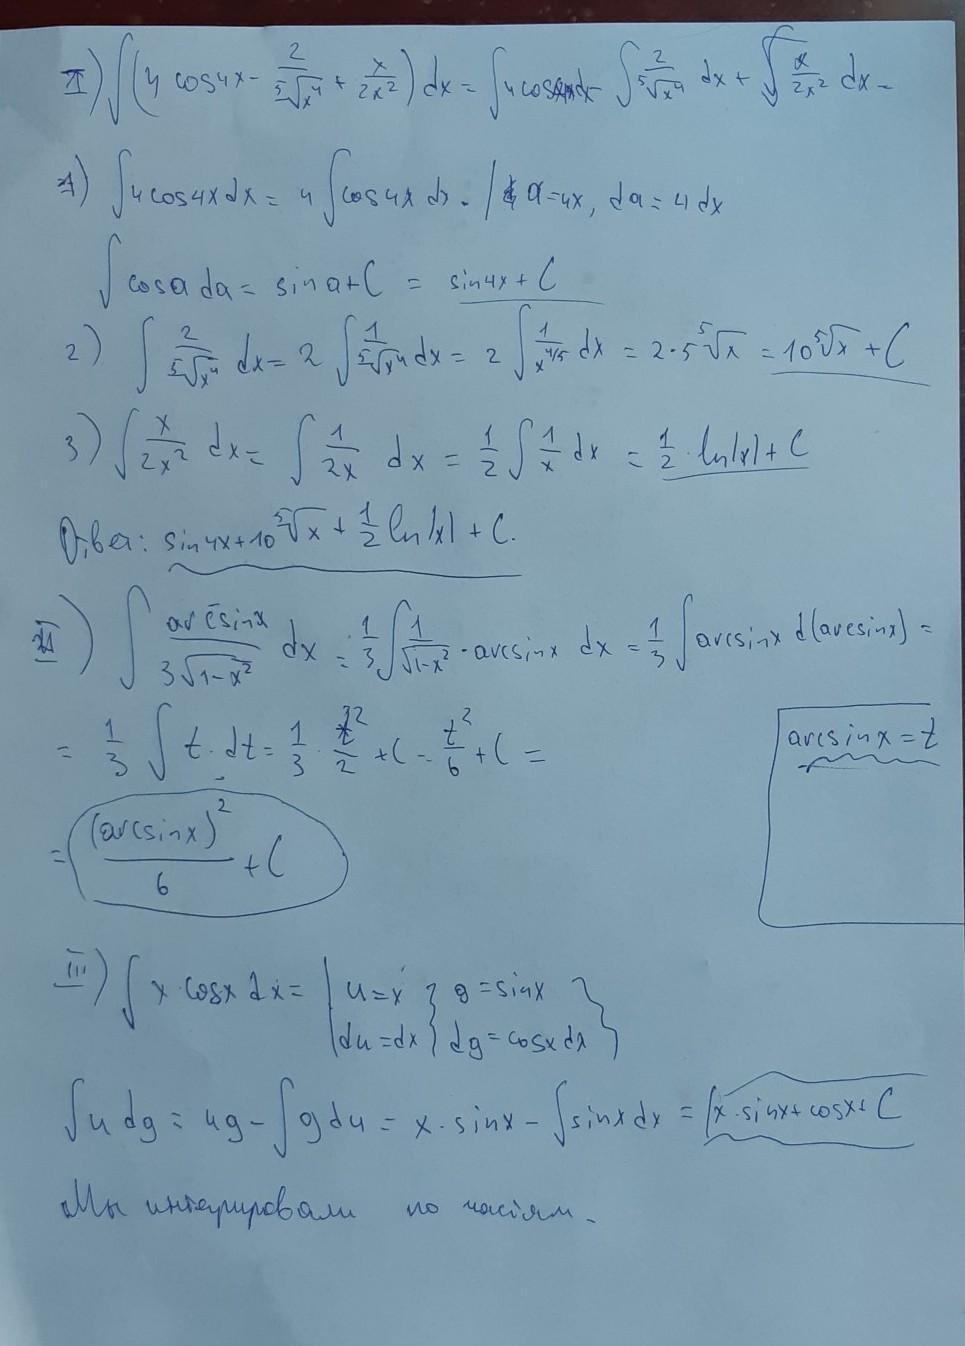 I) ∫(4 cos4x - 2/⁵√x⁴ + x/2x²) dx = ∫4cos4xdx - ∫2/⁵√x⁴ dx + ∫x/2x² dx =
1) ∫4cos4xdx = 4∫cos4x dx. | a=4x, da=4dx
∫cosa da = sin a+C = sin4x+C
2) ∫2/⁵√x⁴ dx = 2∫1/⁵√x⁴ dx = 2∫1/x^(4/5) dx = 2·5⁵√x = 10⁵√x + C
3) ∫x/2x² dx = ∫1/2x dx = 1/2∫1/x dx = 1/2·ln|x|+C
Ответ: sin4x+10⁵√x + 1/2 ln|x| + C.
II) ∫arcsinx/3√1-x² dx = 1/3∫1/√1-x² · arcsinx dx = 1/3∫arcsinx d(arcsinx) =
= 1/3∫t·dt = 1/3·t²/2 + C = t²/6 + C =
arcsinx = t
= (arcsinx)²/6 + C
III) ∫x·cosx dx = | u=x } g=sinx }
| du=dx } dg=cosxdx }
∫u dg = ug - ∫g du = x·sinx - ∫sinxdx = x·sinx+cosx+C
Мы интегрировали по частям.